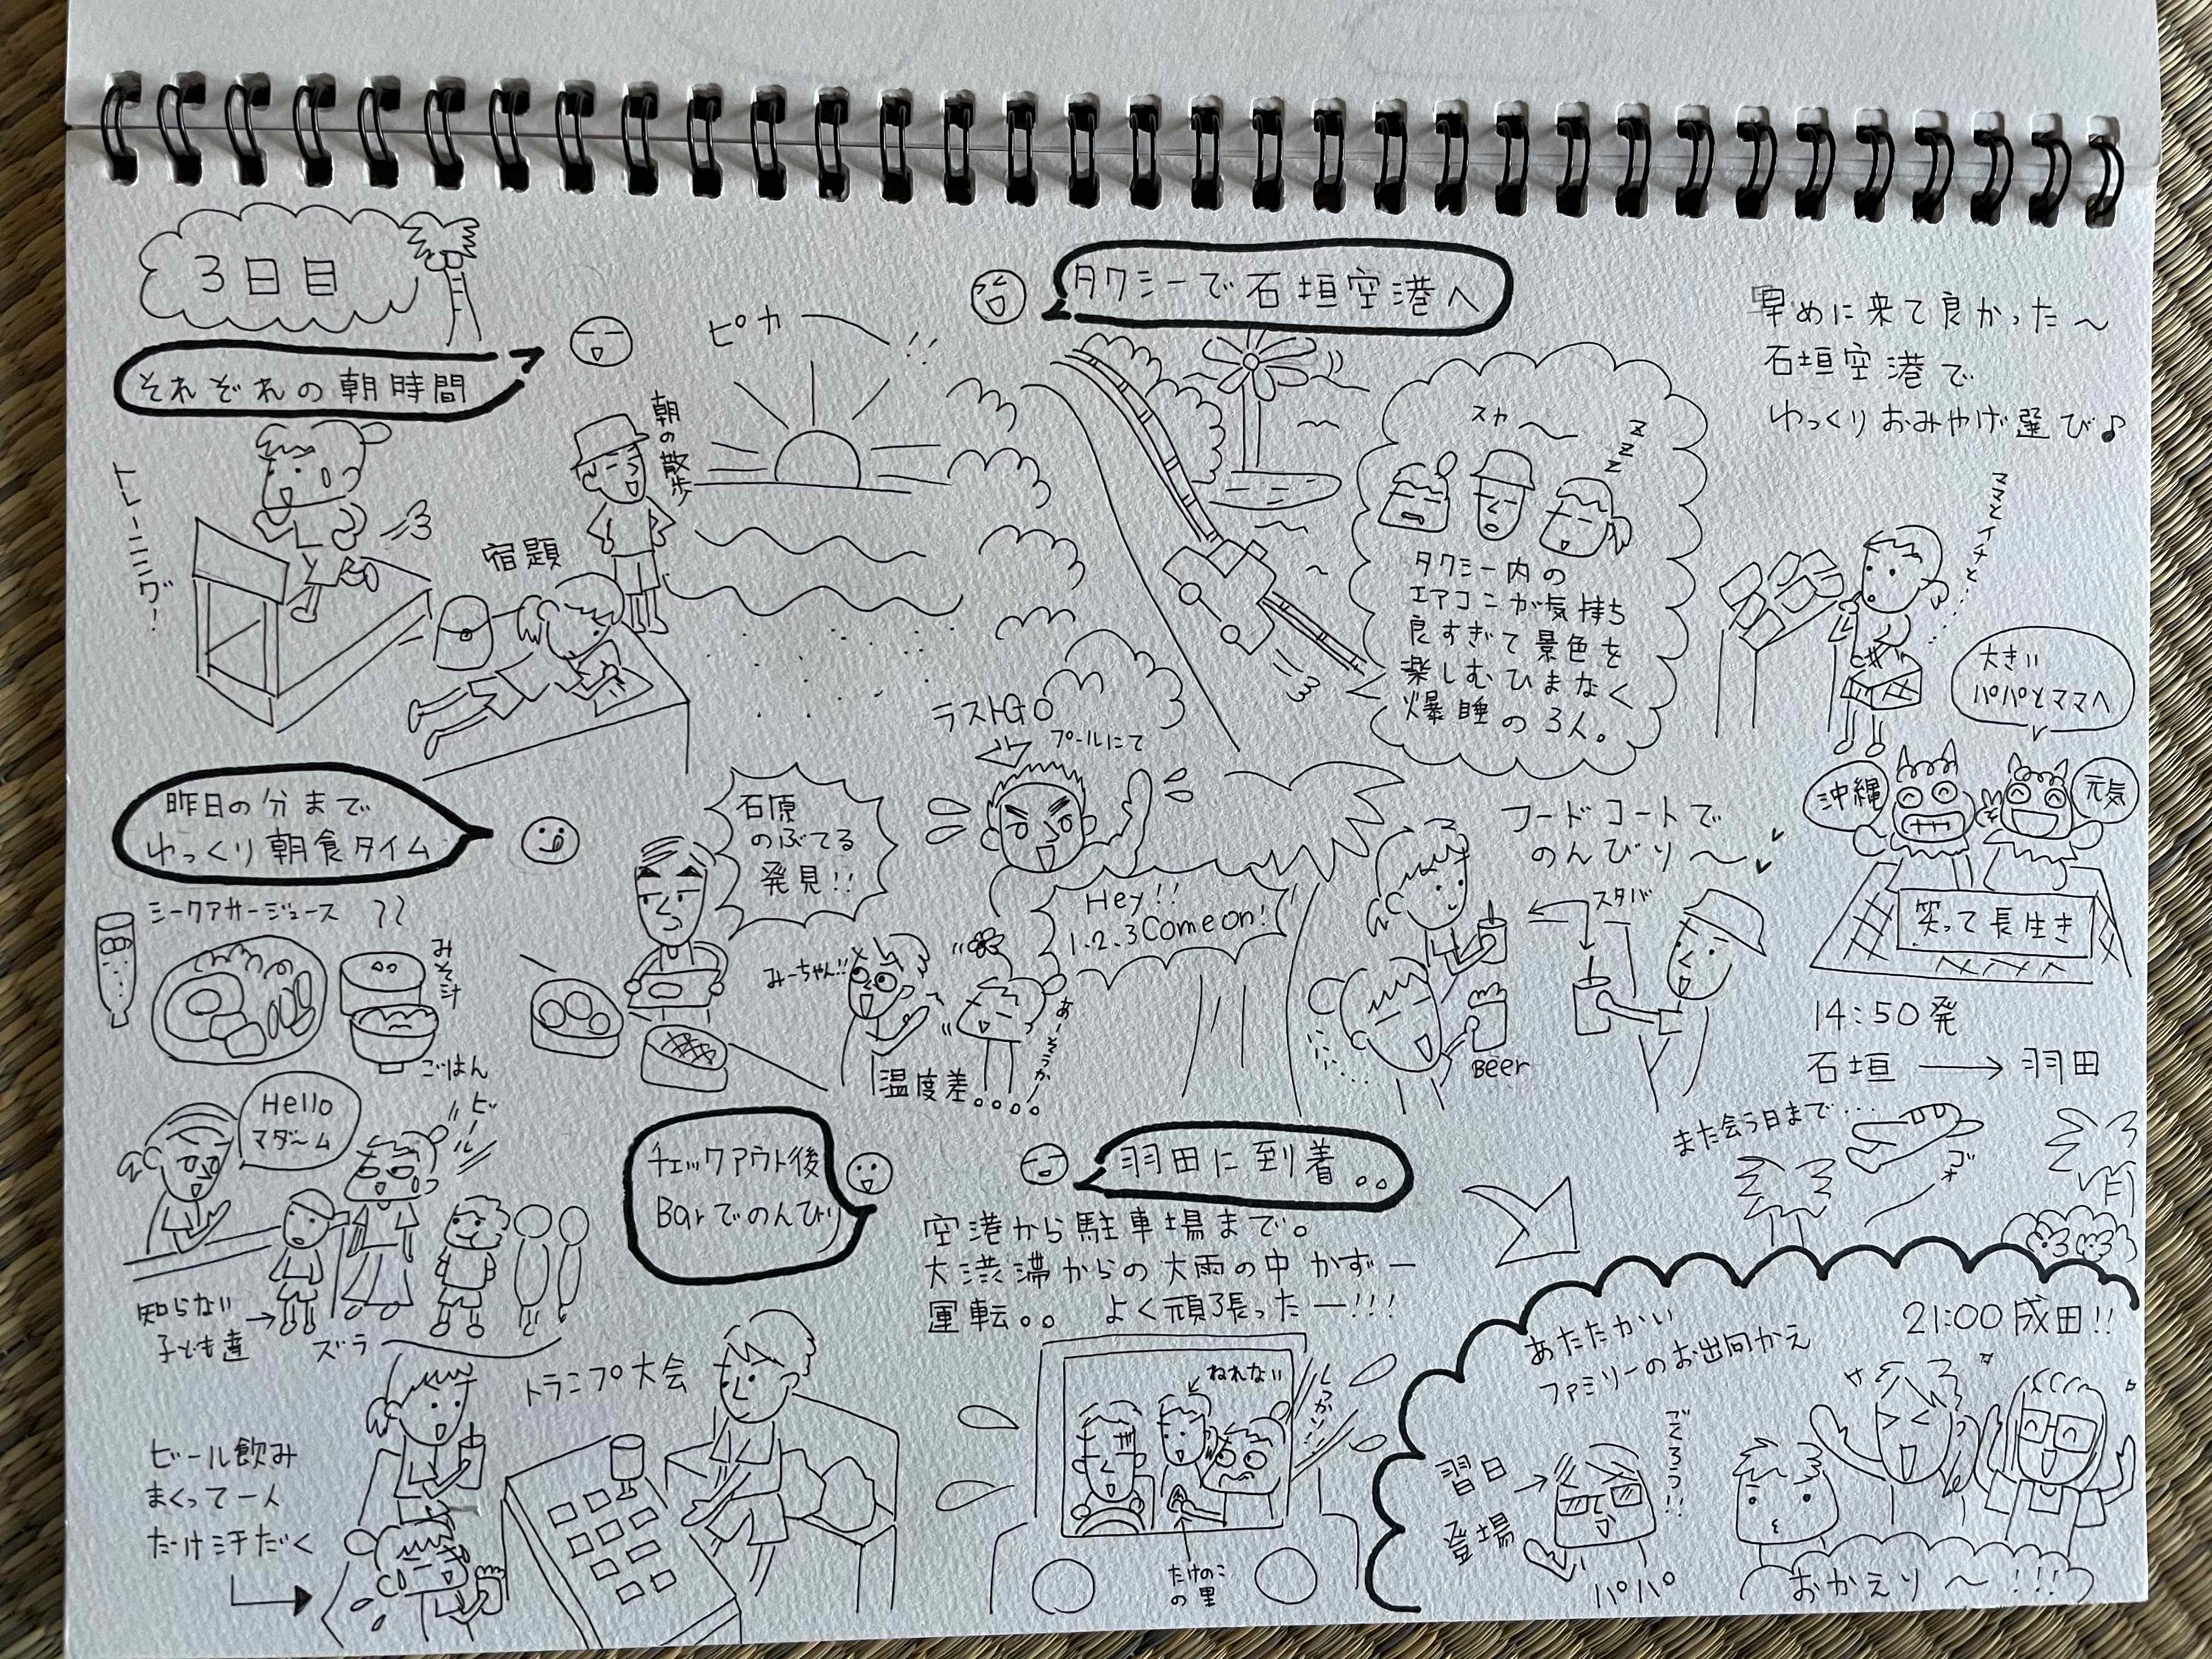 3日目
それぞれの朝時間
トレーニング!
宿題
朝の散歩
ピカ
!!
昨日の分まで
ゆっくり朝食タイム
シークアサージュース
みそ汁
ごはん
石原
のぶてる
発見!!
ラストGO
プールにて
Hey!!
1.2.3 Come on!
みーちゃん!!
あーそうかー
温度差。。。。
Hello
マダ〜ム
ビール
知らない
子ども達
ズラ
チェックアウト後
Barでのんびり
トランプ大会
ビール飲み
まくって一人
だけ汗だく
タクシーで石垣空港へ
スカ〜
zzzz
タクシー内の
エアコンが気持ち
良すぎて景色を
楽しむひまなく
爆睡の3人。
早めに来て良かった〜
石垣空港で
ゆっくりおみやげ選び♪
ママとイチと…
大きい
パパとママへ
沖縄
元気
笑って長生き
フードコートで
のんびり〜
スタバ
Beer
14:50発
石垣→羽田
また会う日まで...
ゴォ
羽田に到着。。
空港から駐車場まで。
大渋滞からの大雨の中かずー
運転。。よく頑張ったー!!!
ねれない
たけのこ
の里
21:00成田!!
あたたかい
ファミリーのお出向かえ
習日
登場
ごくろう!!
パパ
おかえり〜!!!